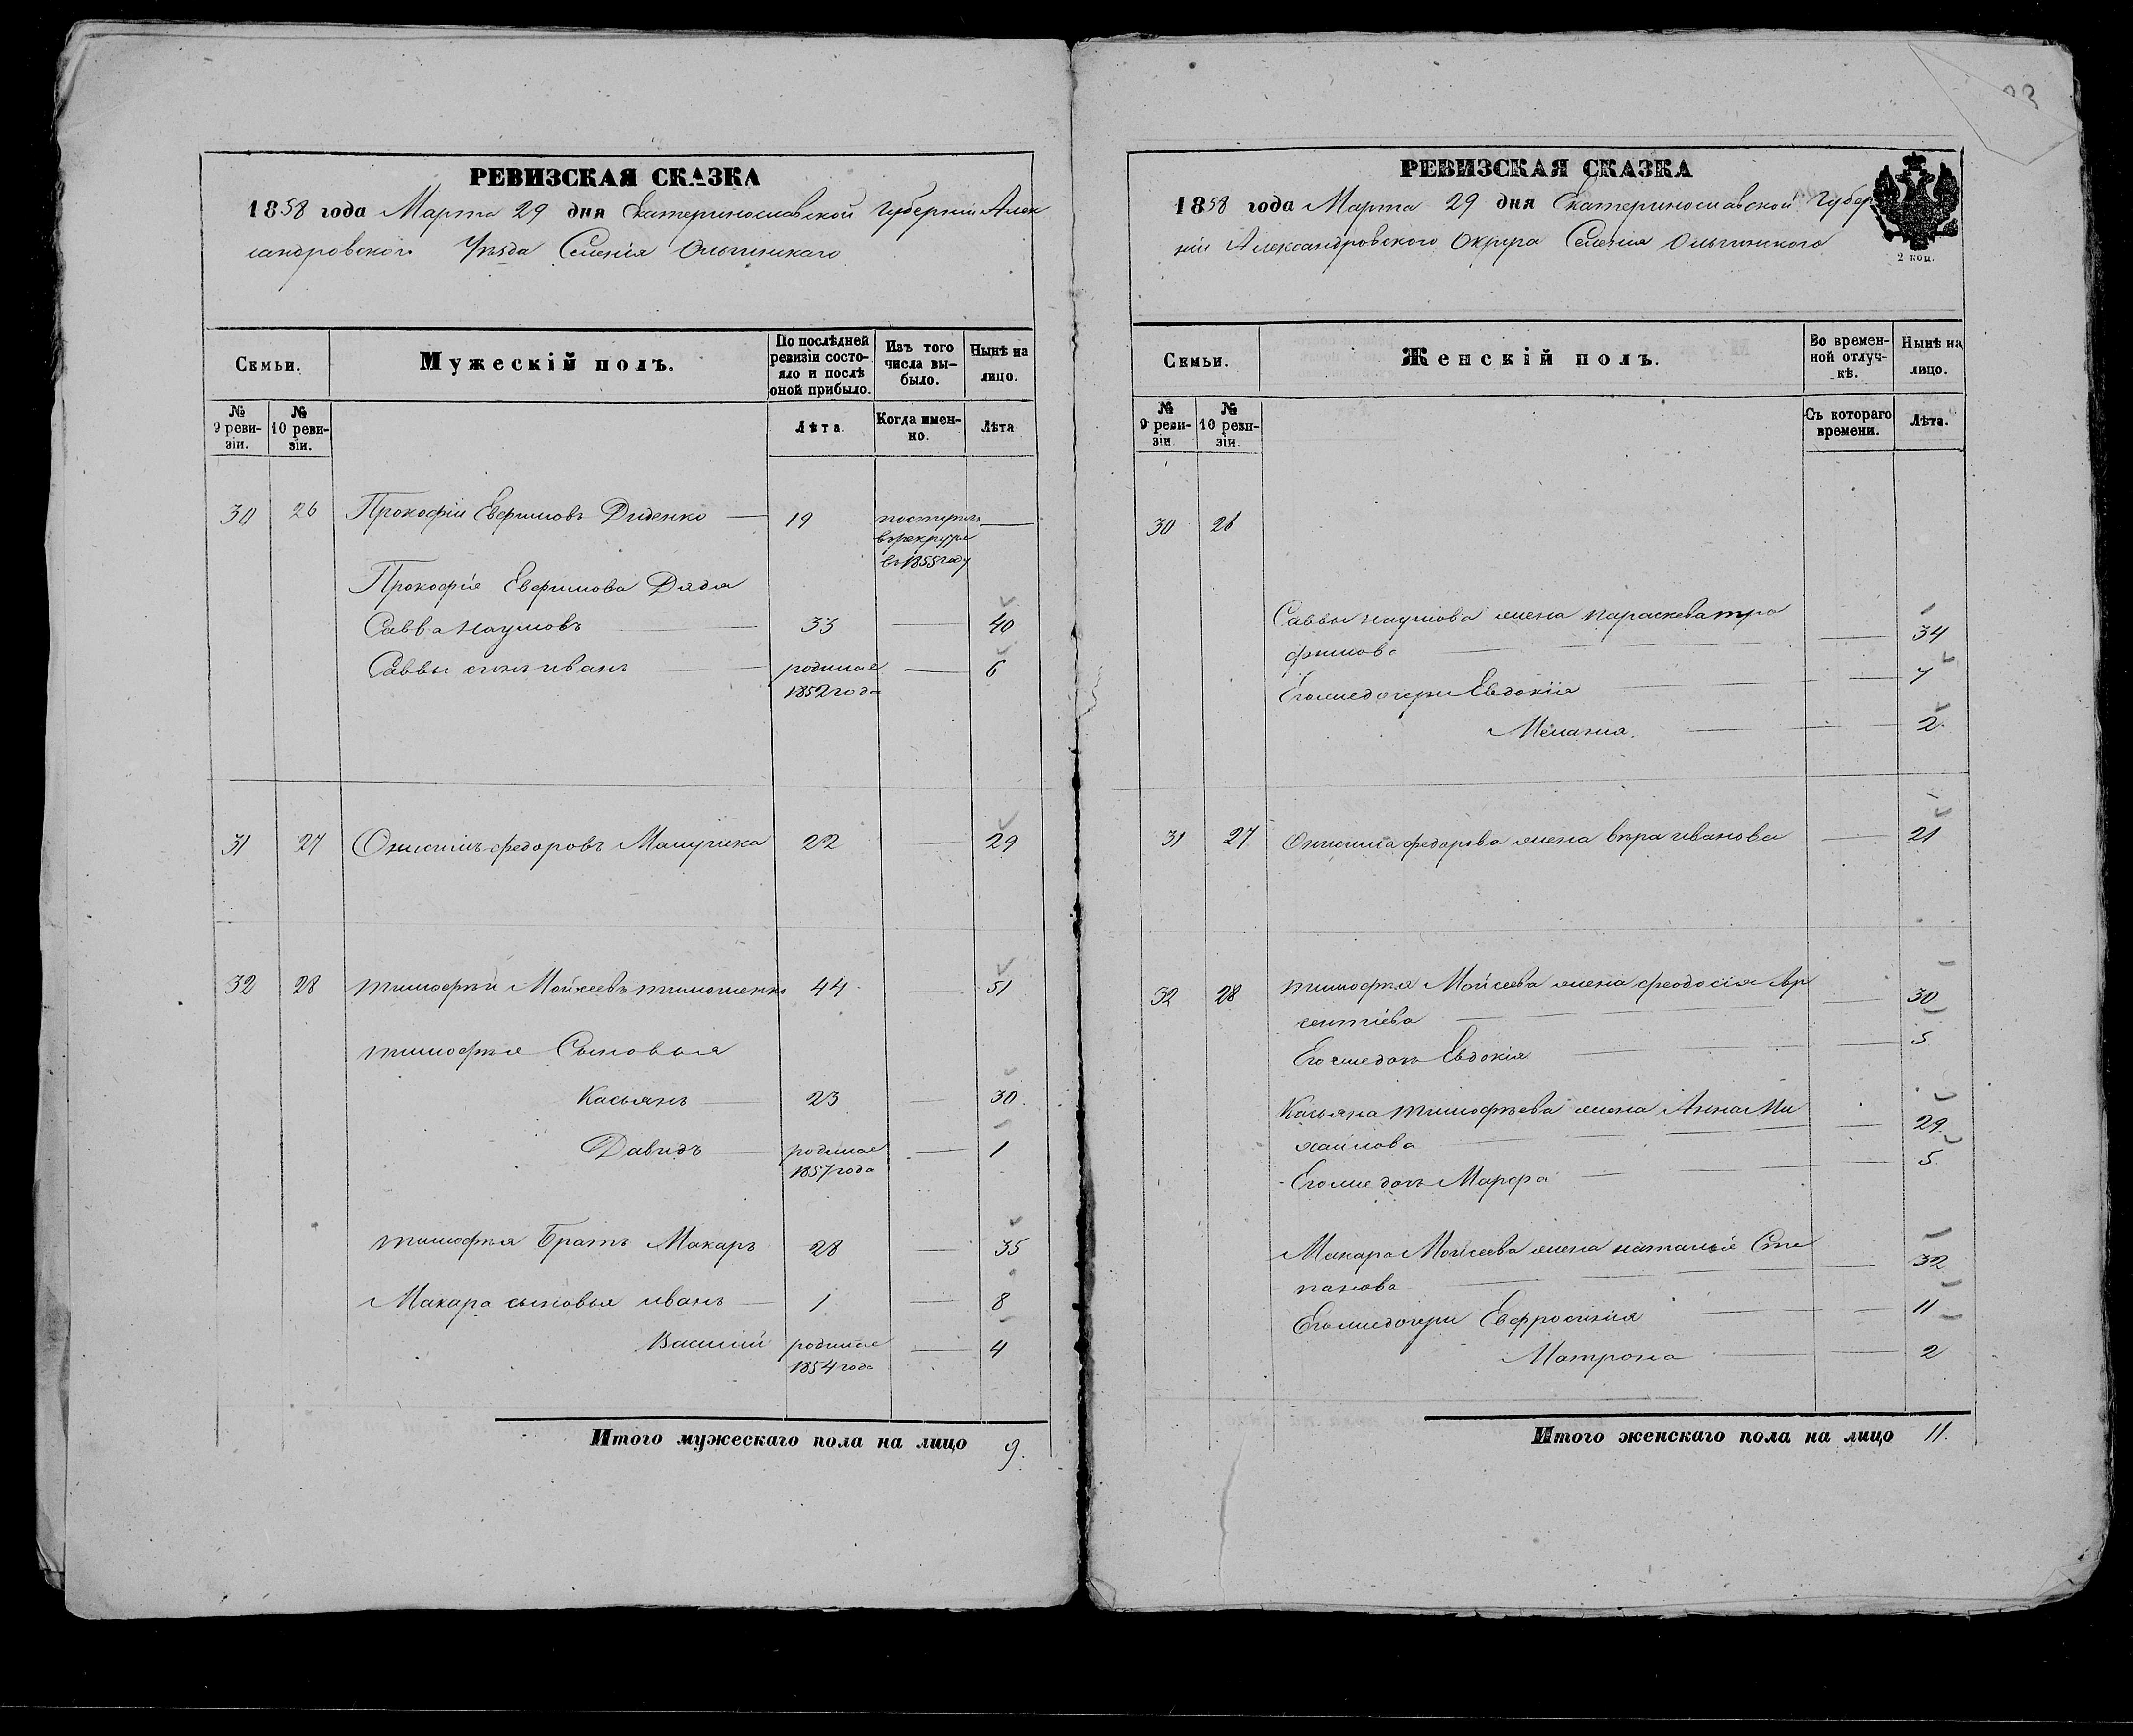 РЕВИЗСКАЯ СКАЗКА
1858 года Марта 29 дня Екатеринославской Губерніи Алек
сандровского Уѣзда Селенія Ольгинскаго
Семьи.
Мужескій полъ.
По послѣдней ревизіи состояло и послѣ оной прибыло.
Изъ того числа выбыло.
Нынѣ на лицо.
№ 9 ревизіи.
№ 10 ревизіи.
Лѣта.
Когда именно.
Лѣта
30 26 Прокофій Евфимовъ Диденко — 19 поступилъ —
в рекруты
въ 1855 году
Прокофія Евфимова Дядя
Савва Наумовъ — 33 — 40
Саввы сынъ иванъ — родился — 6
1852 года
31 27 Онисимъ федоровъ 22 — 29
32 28 тимофѣй Мойсеевъ тимошенко 44 — 51
тимофѣя Сыновья
Касьянъ — 23 — 30
Давидъ — родился — 1
1857 года
тимофѣя Братъ Макаръ 28 — 35
Макара сыновья иванъ — 1 — 8
Василій родился — 4
1854 года
Итого мужескаго пола на лицо 9.
РЕВИЗСКАЯ СКАЗКА
1858 года Марта 29 дня Екатеринославской Губер
ніи Александровского Округа Селенія Ольгинского
2 коп.
Семьи.
Женскій полъ.
Во временной отлучкѣ.
Нынѣ на лицо.
№ 9 ревизіи
№ 10 ревизіи.
Съ котораго времени.
Лѣта.
30 26
Саввы наумова жена параскева тро
фимова — — 34
Егожедочери Евдокія — — 7
Меланія. — — 2
31 27 Онисима федорова жена вѣра иванова — 21
32 28 тимофѣя Мойсеева жена феодосія
— — 30
Егожедочь Евдокія — — 5
Касьяна тимофѣева жена Анна Ми
хайлова — — 29
Егожедочь Марфа — — 5
Макара Мойсеева жена наталія Сте
панова — — 32
Егожедочери Евфросинія — — 11
Матрона — — 2
Итого женскаго пола на лицо 11.